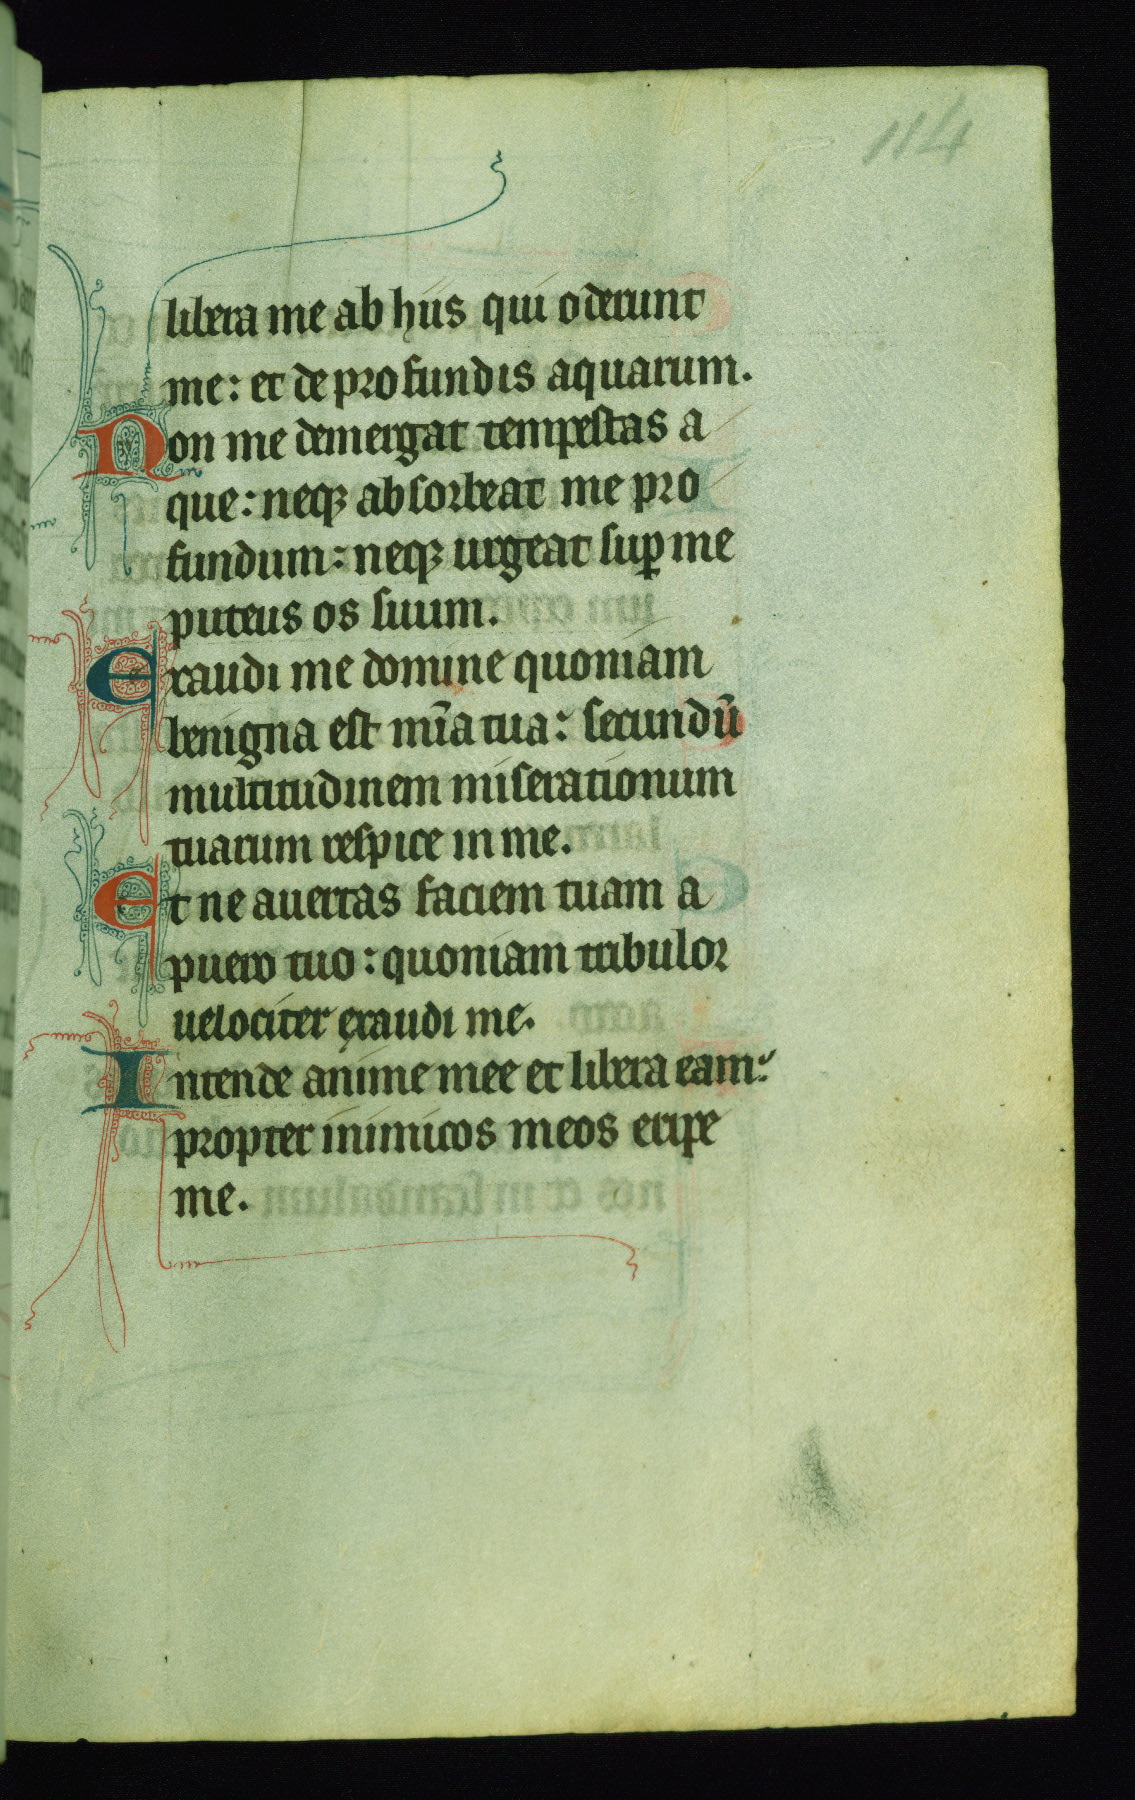 114
libera me ab hiis qui oderunt
me: et de profundis aquarum.
Non me demergat tempestas a
que: neqꝫ absorbeat me pro
fundum: neqꝫ urgeat suꝑ me
puteus os suum.
Exaudi me domine quoniam
benigna est mīa tua: secundū
multitudinem miserationum
tuarum respice in me.
Et ne auertas faciem tuam a
puero tuo: quoniam tribulor
uelociter exaudi me.
Intende anime mee et libera eam:
propter inimicos meos eripe
me.